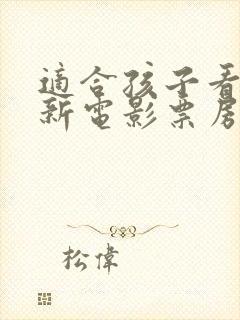 適合孩子看
新電影票房
松偉